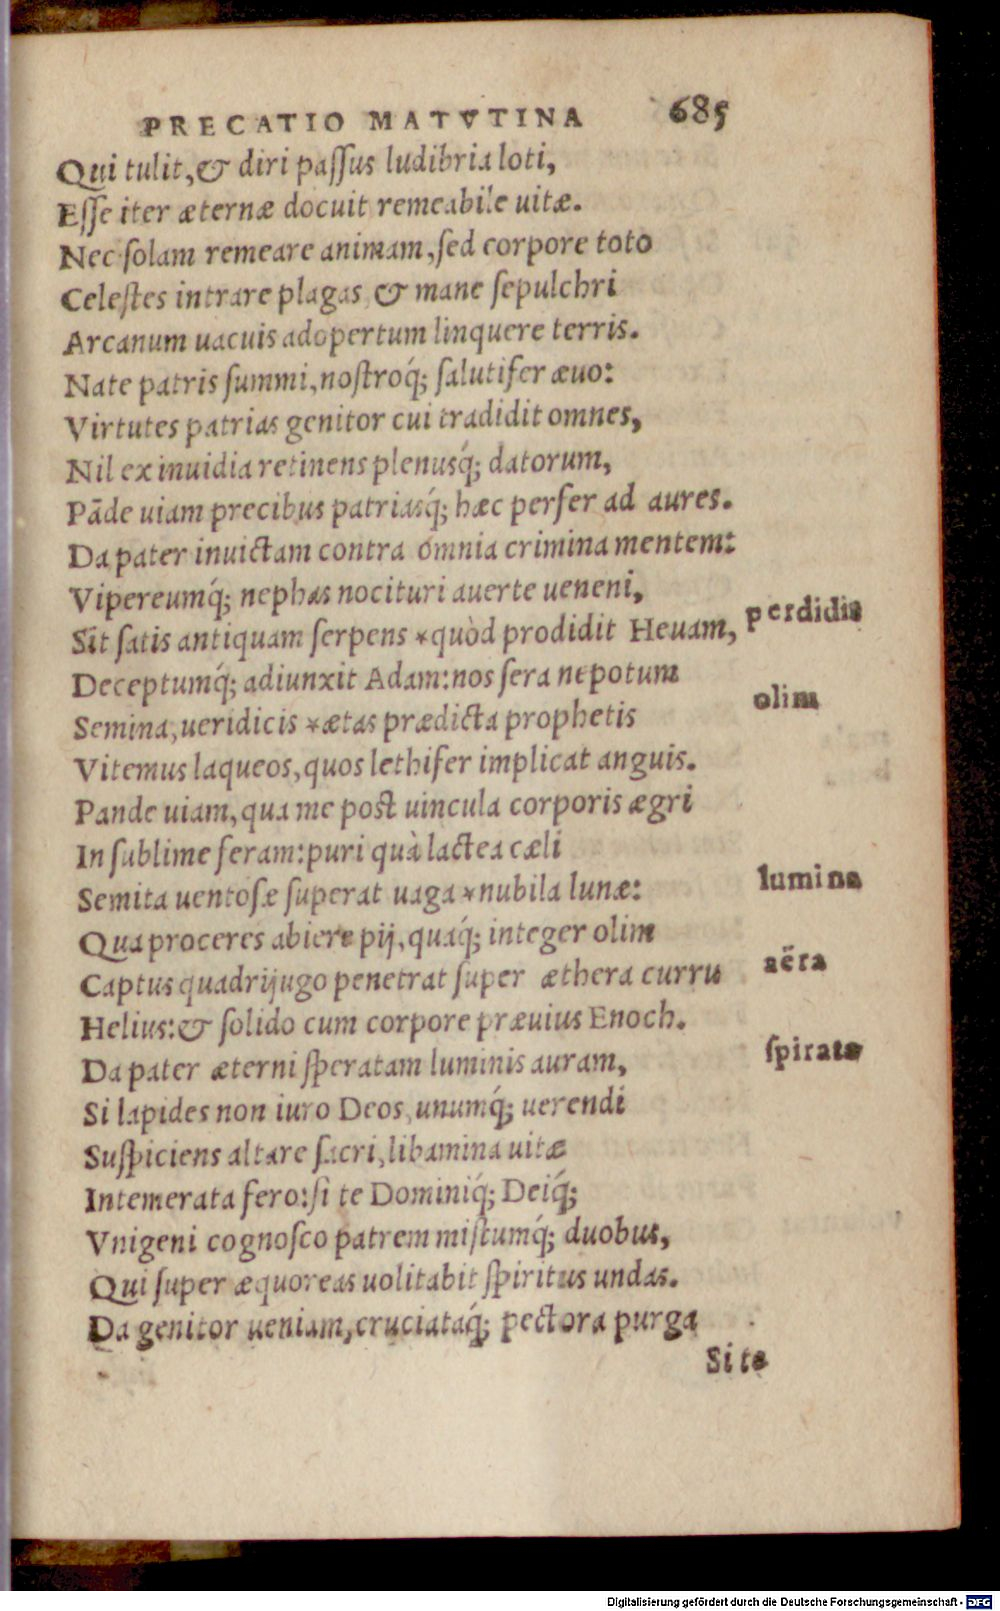 PRECATIO MATVTINA 685
Qui tulit, & diri paſſus ludibria loti,
Eſſe iter æternæ docuit remeabile uitæ.
Nec ſolam remeare animam, ſed corpore toto
Celeſtes intrare plagas & mane ſepulchri
Arcanum uacuis adopertum linquere terris.
Nate patris ſummi, noſtroq́; ſalutifer æuo:
Virtutes patrias genitor cui tradidit omnes,
Nil ex inuidia retinens plenusq́; datorum,
Pāde uiam precibus patriasq́; hæc perfer ad aures.
Da pater inuictam contra omnia crimina mentem:
Vipereumq́; nephas nocituri auerte ueneni,
Sit ſatis antiquam ſerpens *quòd prodidit Heuam, perdidit
Deceptumq́; adiunxit Adam: nos ſera nepotum
Semina, ueridicis *ætas prædicta prophetis olim
Vitemus laqueos, quos lethifer implicat anguis.
Pande uiam, qua me post uincula corporis ægri
In ſublime feram: puri quà lactea cæli
Semita uentoſæ ſuperat uaga *nubila lunæ: lumina
Qua proceres abiere pij, quaq́; integer olim
Captus quadrijugo penetrat ſuper æthera curru aëra
Helius: & ſolido cum corpore præuius Enoch.
Da pater æterni ſperatam luminis auram, ſpirate
Si lapides non iuro Deos, unumq́; uerendi
Suſpiciens altare ſacri, libamina uitæ
Intemerata fero: ſi te Dominiq́; Deiq́;
Vnigeni cognoſco patrem miſtumq́; duobus,
Qui ſuper æquoreas uolitabit ſpiritus undas.
Da genitor ueniam, cruciataq́; pectora purga
Si te
Digitalisierung gefördert durch die Deutsche Forschungsgemeinschaft - DFG